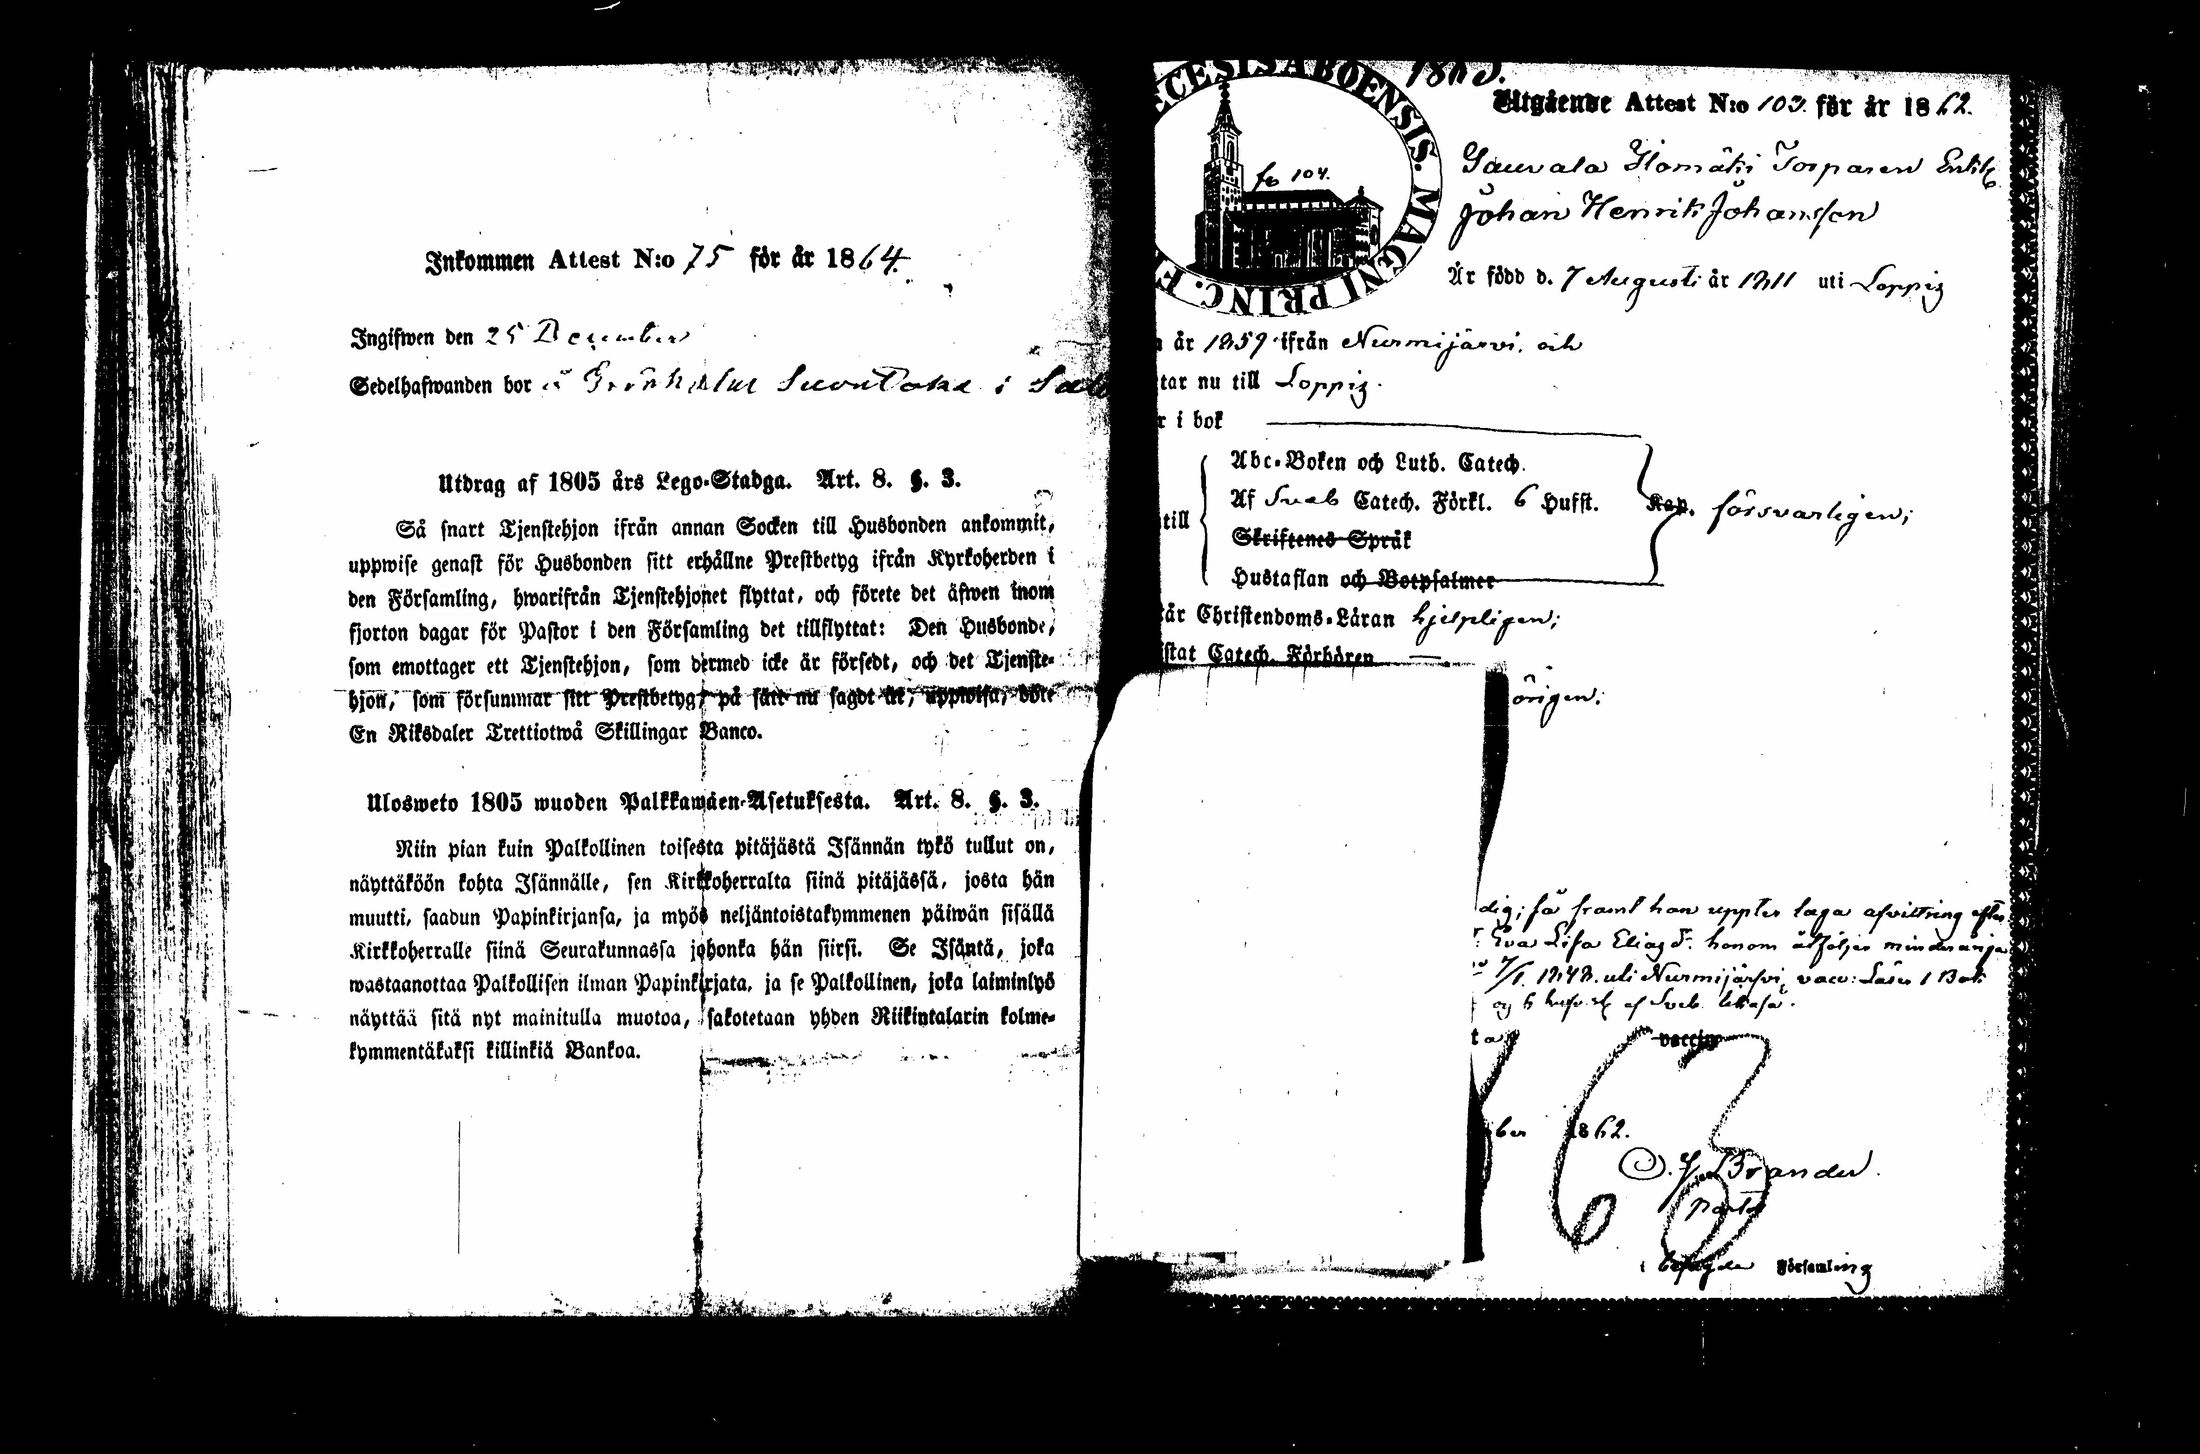 Inkommen Attest N:o 75 för år 1864.
Ingifwen den 25 December
Sedelhafwanden bor å Suontaka i
Utdrag af 1805 års Lego-Stadga. Art. 8. §. 3.
Så snart Tjenstehjon ifrån annan Socken till Husbonden ankommit,
uppwise genast för Husbonden sitt erhållne Prestbetyg ifrån Kyrkoherden i
den Församling, hwarifrån Tjenstehjonet flyttat, och förete det äfwen inom
fjorton dagar för Pastor i den Församling det tillflyttat: Den Husbonde,
som emottager ett Tjenstehjon, som dermed icke är försedt, och det Tjenste-
hjon, som försummar sitt Prestbetyg, på sätt nu sagdt är, uppwisa, böte
En Riksdaler Trettiotwå Skillingar Banco.
Ulosweto 1805 wuoden Palkkawäen-Asetuksesta. Art. 8. §. 3.
Niin pian kuin Palkollinen toisesta pitäjästä Isännän tykö tullut on,
näyttäköön kohta Isännälle, sen Kirkkoherralta siinä pitäjässä, josta hän
muutti, saadun Papinkirjansa, ja myös neljäntoistakymmenen päiwän sisällä
Kirkkoherralle siinä Seurakunnassa johonka hän siirsi. Se Isäntä, joka
wastaanottaa Palkollisen ilman Papinkirjata, ja se Palkollinen, joka laiminlyö
näyttää sitä nyt mainitulla muotoa, sakotetaan yhden Riikintalarin kolme-
kymmentäkaksi killinkiä Bankoa.
ECESIS ABOENSIS. MAGNI PRINC. F
fo 104.
Utgående Attest N:o 103. för år 1862.
Torparen Enkl.
Johan Henrik Johansson
Är född d. 7 Augusti år 1811 uti Loppis
år 1859 ifrån Nurmijärvi, och
tar nu till Loppis.
r i bok
Abc-Boken och Luth. Catech.
till Af Sveb Catech. Förkl. 6 Hufst. Kap. försvarligen;
Skriftenes Språk
Hustaflan och Botpsalmer
tår Christendoms-Läran hjelpligen;
istat Catech. Förhören —
örigen:
dig; få framt han uppter laga afvittring efter
Eva Lisa Eliasdr. honom åtföljer minderåriga
1848. uti Nurmijärvi, vacc: Läser i Bok
af Sveb.
ta vaccin
ber 1862.
Brander.
Pastor
i besagde Församling
63